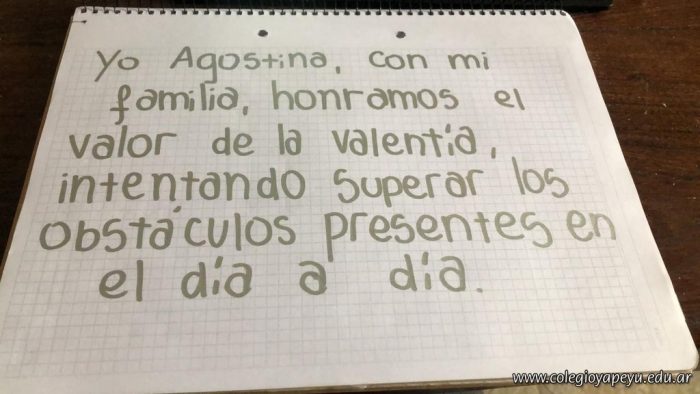 Yo Agostina, con mi
familia, honramos el
valor de la valentía,
intentando superar los
obstáculos presentes en
el día a día.
www.colegioyapeyu.edu.ar